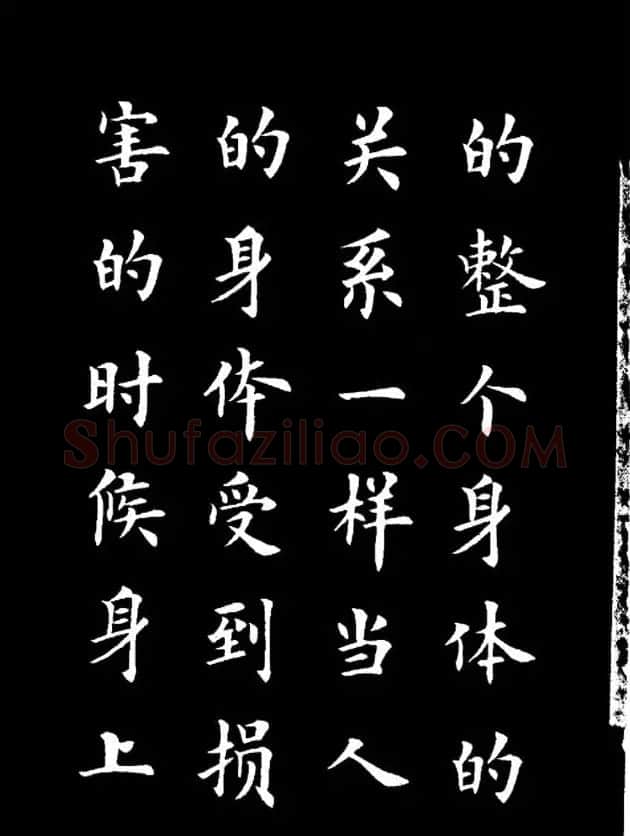 的整个身体的
关系一样当人
的身体受到损
害的时候身上
Shufaziliao.COM